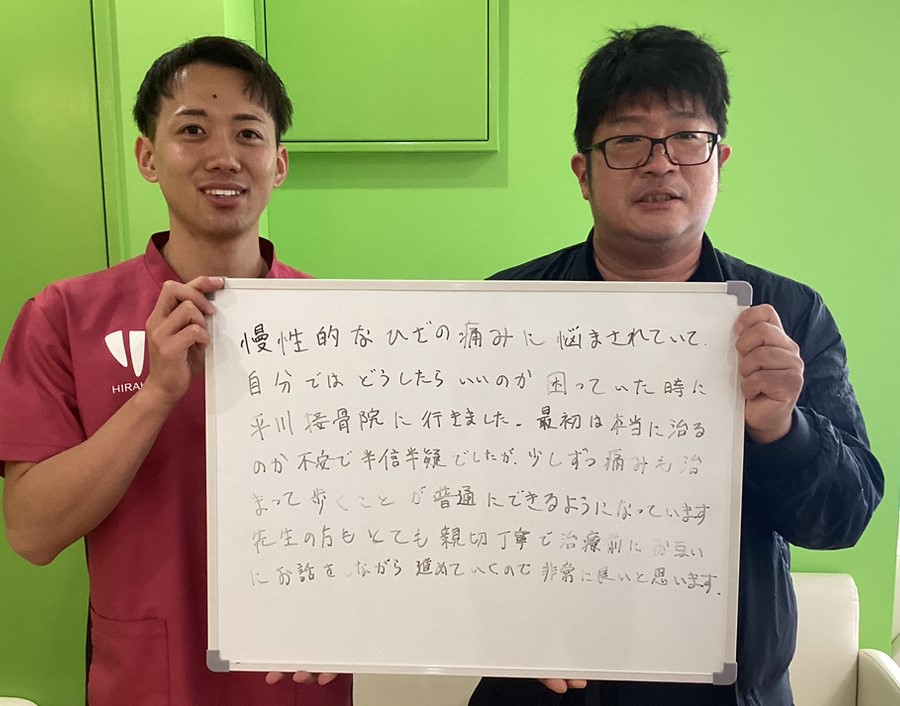 慢性的なひざの痛みに悩まされていて、
自分ではどうしたらいいのか困っていた時に
平川接骨院に行きました。最初は本当に治る
のか不安で半信半疑でしたが、少しずつ痛みも治
まって歩くことが普通にできるようになっています
先生の方もとても親切丁寧で治療前にお互い
にお話をしながら進めていくので非常に良いと思います。
HIRA